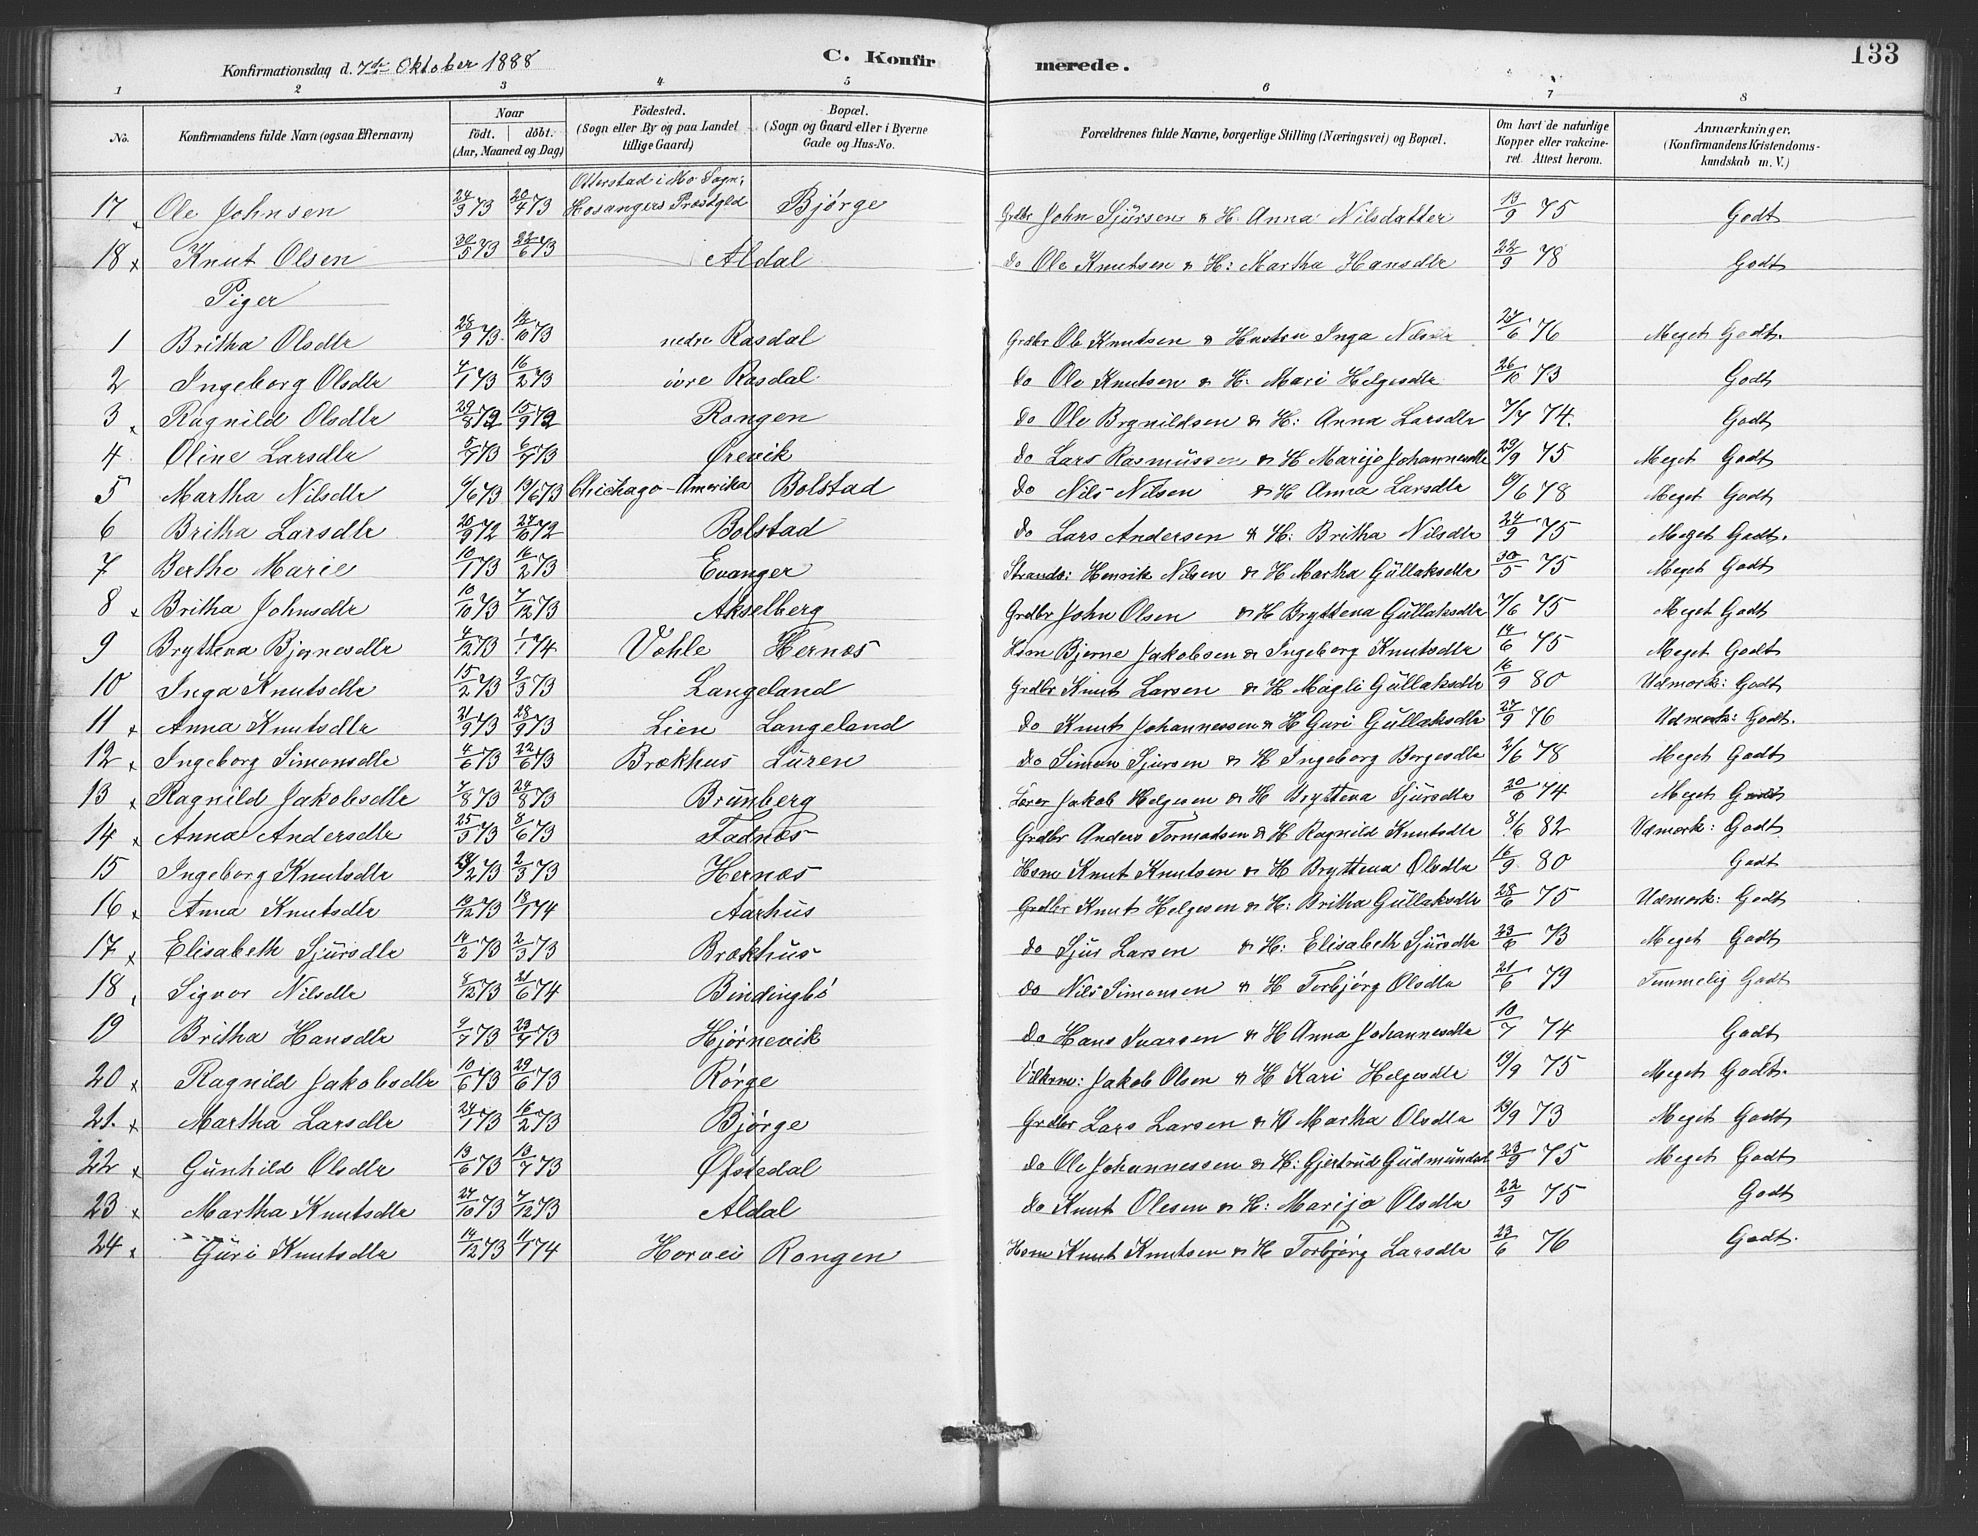 133
Konfirmationsdag d. 7de Oktober 1888 C. Konfirmerede.
1 2 3 4 5 6 7 8
No. Konfirmandens fulde Navn (ogsaa Efternavn) Naar födt. döbt. (Aar, Maaned og Dag) Födested. (Sogn eller By og paa Landet tillige Gaard) Bopæl. (Sogn og Gaard eller i Byerne Gade og Hus-No. Forældrenes fulde Navne, borgerlige Stilling (Næringsvei) og Bopæl. Om havt de naturlige Kopper eller vakcineret. Attest herom. Anmærkninger. (Konfirmandens Kristendomskundskab m. V.)
17 Ole Johnsen 24/3 73 20/4 73 Otterstad i Mo Sogn; Hosangers Præstgld Bjørge Grdbr John Sjursen & H. Anna Nilsdatter 13/9 75 Godt
18 x Knut Olsen 30/5 73 22/6 73 Aldal do Ole Knutsen & H: Martha Hansdtr 22/9 78 Godt
Piger
1 Britha Olsdtr 28/9 73 12/10 73 nedre Rasdal Grdbr Ole Knutsen & Hustru Inga Nilsdtr 27/6 76 Meget Godt.
2 Ingeborg Olsdtr 7/1 73 16/2 73 övre Rasdal do Ole Knutsen & H: Mari Helgesdtr 26/10 73 Godt
3 Ragnild Olsdtr 29/8 72 15/9 72 Rongen do Ole Brynildsen & H: Anna Larsdtr 7/7 74. Godt
4 Oline Larsdtr 5/7 73 6/7 73 Ørevik do Lars Rasmussen & H Marijo Johannesdtr 29/9 75 Meget Godt
5 Martha Nilsdtr 9/6 73 19/6 73 Chichago-Amerika Bolstad do Nils Nilsen & H Anna Larsdtr 19/6 78 Meget Godt
6 Britha Larsdtr 20/9 72 27/10 72 Bolstad do Lars Andersen & H: Britha Nilsdtr 24/9 75 Meget Godt.
7 Berthe Marie 10/1 73 16/2 73 Evanger Strands: Henrik Nilsen & H Martha Gullaksdtr 30/5 75 Meget Godt
8 x Britha Johnsdtr 10/10 73 7/12 73 Akselberg Grdbr John Olsen & H Bryttena Gullaksdtr 7/6 75 Meget Godt
9 Bryttena Bjernesdtr 4/12 73 1/1 74 Vohle Hernæs Hsm Bjerne Jakobsen & Ingeborg Knutsdtr 14/6 75 Meget Godt
10 Inga Knutsdtr 15/2 73 9/3 73 Langeland Grdbr Knut Larsen & H Magli Gullaksdtr 16/9 80 Udmærk: Godt
11 x Anna Knutsdtr 21/9 73 28/9 73 Lien Langeland do Knut Johannessen & H Guri Gullaksdtr 27/9 76 Udmærk: Godt.
12 x Ingeborg Simonsdtr 4/6 73 22/6 73 Brækhus Luren do Simon Sjursen & H Ingeborg Borgesdtr 2/6 78 Meget Godt
13 x Ragnild Jakobsdtr 7/8 73 24/8 73 Brunberg Lærer Jakob Helgesen & H Bryttena Sjursdtr 20/6 74 Meget Godt
14 x Anna Andersdtr 25/5 73 8/6 73 Fadnæs Grdbr Anders Tormodsen & H Ragnild Knutsdtr 8/6 82 Udmærk: Godt
15 Ingeborg Knutsdtr 18/2 73 2/3 73 Hernæs Hsm Knut Knutsen & H Bryttena Olsdtr 16/9 80 Godt
16 x Anna Knutsdtr 14/12 73 18/1 74 Aarhus Grdbr Knut Helgesen & H: Britha Gullaksdtr 28/6 75 Udmærk: Godt
17 x Elisabeth Sjursdtr 14/2 73 2/3 73 Brækhus do Sjur Larsen & H: Elisabeth Sjursdtr 23/6 73 Meget Godt
18 Sigvor Nilsdtr 8/12 73 21/6 74 Bindingbö do Nils Simonsen & H Torbjørg Olsdtr 21/6 79 Temmelig Godt
19 Britha Hansdtr 9/7 73 23/7 73 Hjørnevik do Hans Ivarsen & H Anna Johannesdtr 10/7 74 Godt
20 x Ragnild Jakobsdtr 10/6 73 29/6 73 Rørge Jakob Olsen & H Kari Helgesdtr 19/9 75 Meget Godt.
21. x Martha Larsdtr 24/1 73 16/2 73 Bjørge Grdbr Lars Larsen & H Martha Olsdtr 19/9 73 Meget Godt
22 x Gunhild Olsdtr 13/6 73 13/7 73 Øfstedal do Ole Johannessen & H: Gjertrud Gudmundsd. 23/9 75 Meget Godt
23 x Martha Knutsdtr 27/10 73 7/12 73 Aldal do Knut Olesen & H: Marijo Olsdtr 22/9 75 Godt
24 Guri Knutsdtr 14/12 73 11/1 74 Horvei Rongen Hsm Knut Knutsen & H Torbjørg Larsdtr 23/6 76 Godt.